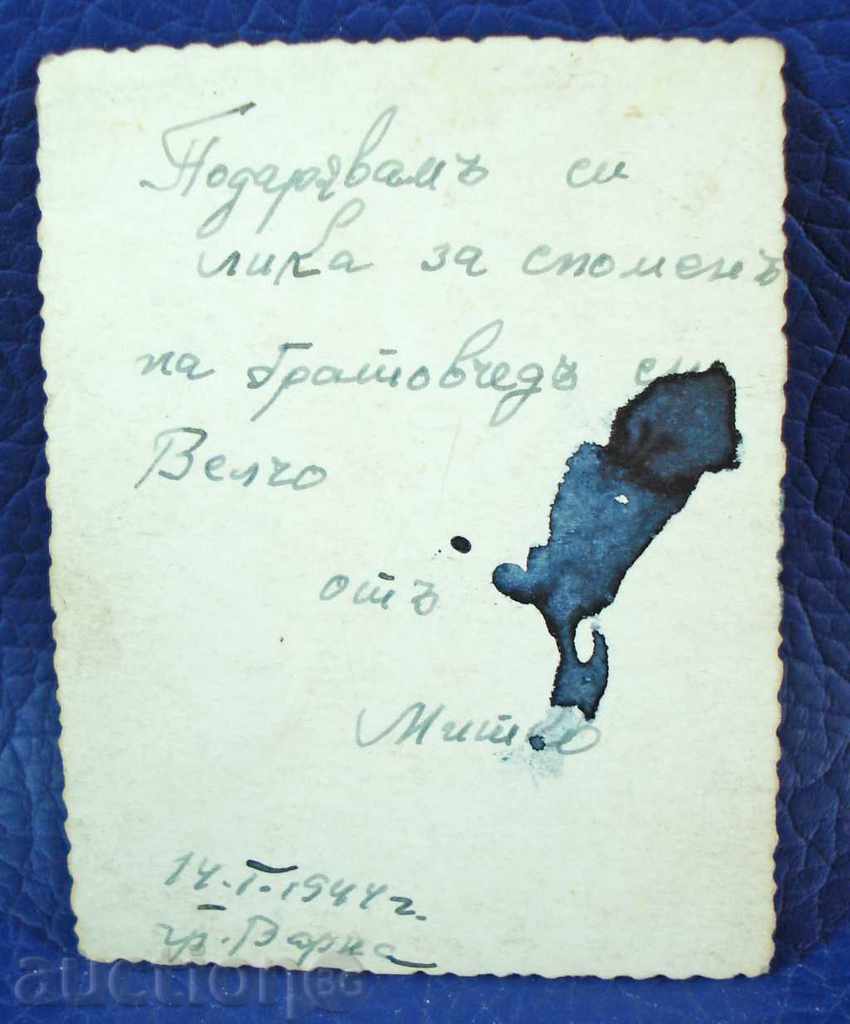 Подарявамъ си
лика за споменъ
на братовчедъ си
Велчо
отъ
Митко
14.I.1944 г.
гр. Варна
auction.BG